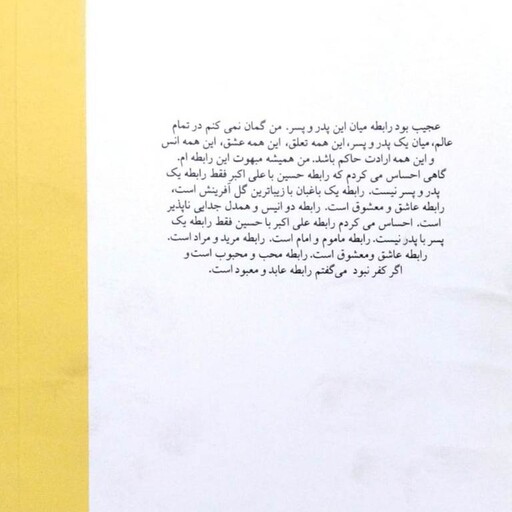 عجیب بود رابطه میان این پدر و پسر. من گمان نمی کنم در تمام
عالم، میان یک پدر و پسر، این همه تعلق، این همه عشق، این همه انس
و این همه ارادت حاکم باشد. من همیشه مبهوت این رابطه ام.
گاهی احساس می کردم که رابطه حسین با علی اکبر فقط رابطه یک
پدر و پسر نیست. رابطه یک باغبان با زیباترین گل آفرینش است،
رابطه عاشق و معشوق است. رابطه دو انیس و همدل جدایی ناپذیر
است. احساس می کردم رابطه علی اکبر با حسین فقط رابطه یک
پسر با پدر نیست. رابطه ماموم و امام است. رابطه مرید و مراد است.
رابطه عاشق ومعشوق است. رابطه محب و محبوب است و
اگر کفر نبود می‌گفتم رابطه عابد و معبود است.